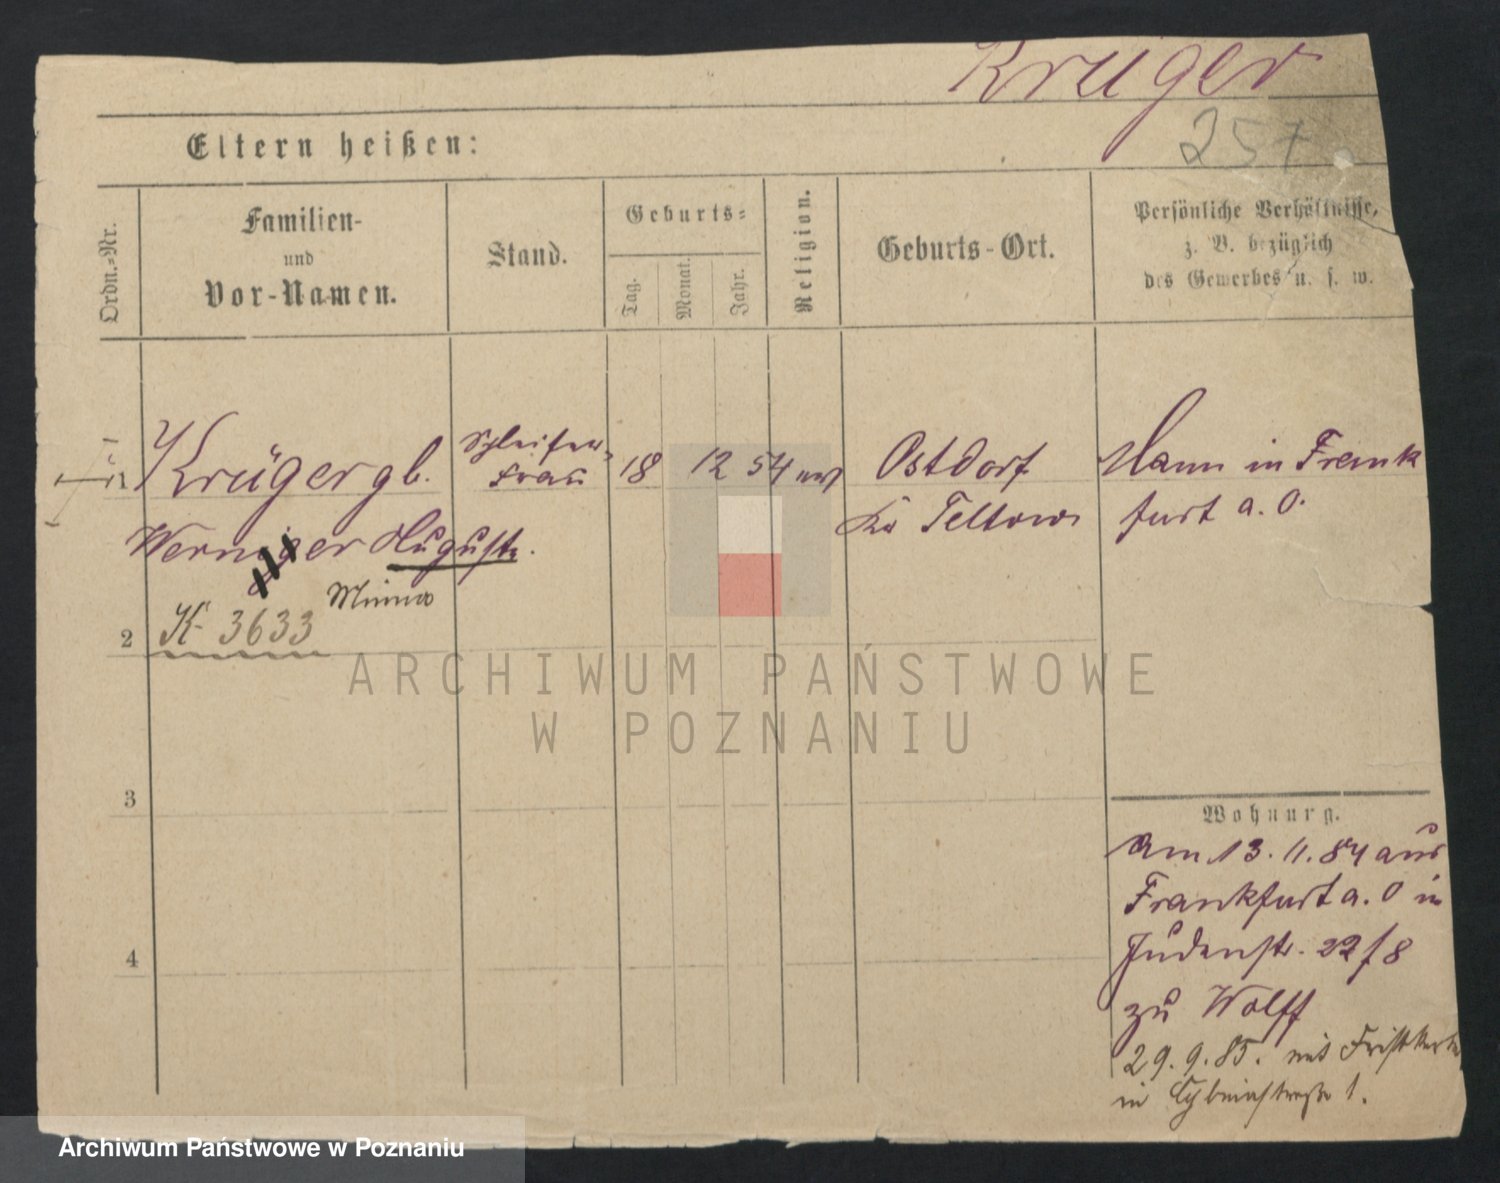 Krüger
257
Eltern heißen:
Ordn.-Nr.
Familien-
und
Vor-Namen.
Stand.
Geburts-
Tag.
Monat.
Jahr.
Religion.
Geburts-Ort.
Persönliche Verhältnisse,
z. B. bezüglich
des Gewerbes u. s. w.
1
Krüger gb.
Schleifer-
frau
18 12 54 ev
Ostdorf
Kr Teltow
Mann in Frank
furt a. O.
Werniger Auguste.
Minna
K 3633
2
3
4
Wohnung.
Am 13. 11. 84 aus
Frankfurt a. O in
Judenstr. 22/8
zu Wolff
29. 9. 85. mit
in Cybinastraße 1.
ARCHIWUM PAŃSTWOWE
W POZNANIU
Archiwum Państwowe w Poznaniu